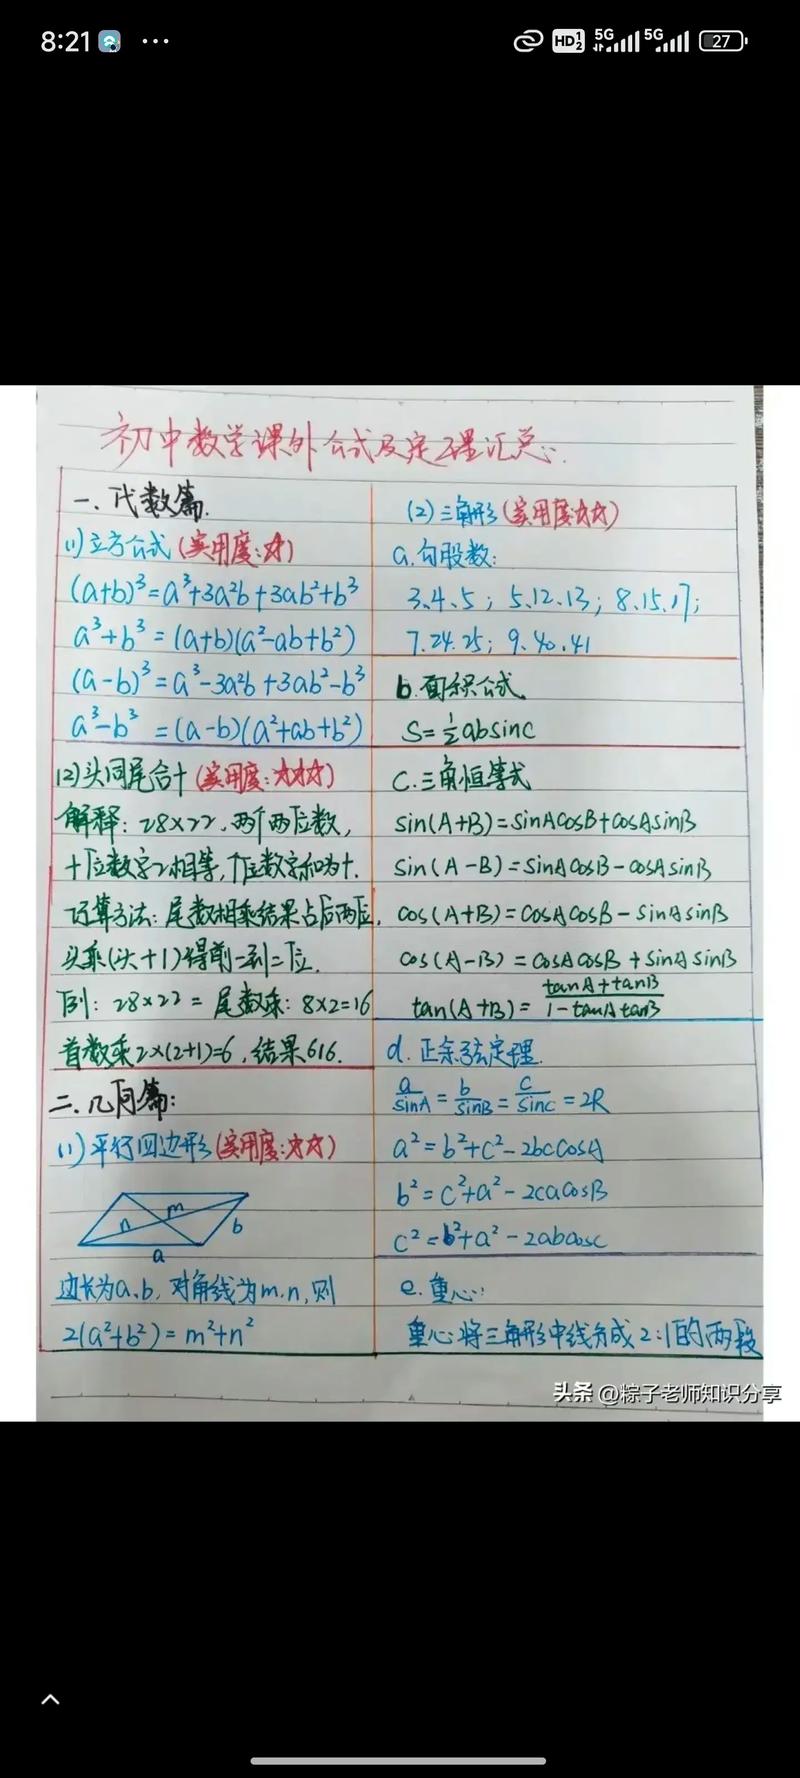 8:21 ... HD 1 2 5G 5G 27
初中数学课外公式及定理汇总:
一、代数篇.
(1)立方公式(实用度:☆)
(a+b)³=a³+3a²b+3ab²+b³
a³+b³=(a+b)(a²-ab+b²)
(a-b)³=a³-3a²b+3ab²-b³
a³-b³=(a-b)(a²+ab+b²)
(2)头同尾合十(实用度:☆☆☆)
解释:28×22,两个两位数,
十位数字2相等,个位数字和为十.
巧算方法:尾数相乘结果占后两位,
头乘(头+1)得前一到二位.
例:28×22=尾数乘:8×2=16
首数乘2×(2+1)=6,结果616.
二、几何篇:
(1)平行四边形(实用度:☆☆)
n m b
a
边长为a、b,对角线为m、n,则
2(a²+b²)=m²+n²
(2)三角形(实用度:☆☆)
a.勾股数:
3.4.5;5.12.13;8.15.17;
7.24.25;9.40.41
b.面积公式
S=½absinC
C.三角恒等式
sin(A+B)=sinAcosB+cosAsinB
sin(A-B)=sinAcosB-cosAsinB
cos(A+B)=cosAcosB-sinAsinB
cos(A-B)=cosAcosB+sinAsinB
tan(A+B)=(tanA+tanB)/(1-tanAtanB)
d.正余弦定理.
a/sinA=b/sinB=c/sinC=2R
a²=b²+c²-2bccosA
b²=c²+a²-2cacosB
c²=b²+a²-2abcosc
e.重心:
重心将三角形中线分成2:1的两段
头条 @粽子老师知识分享